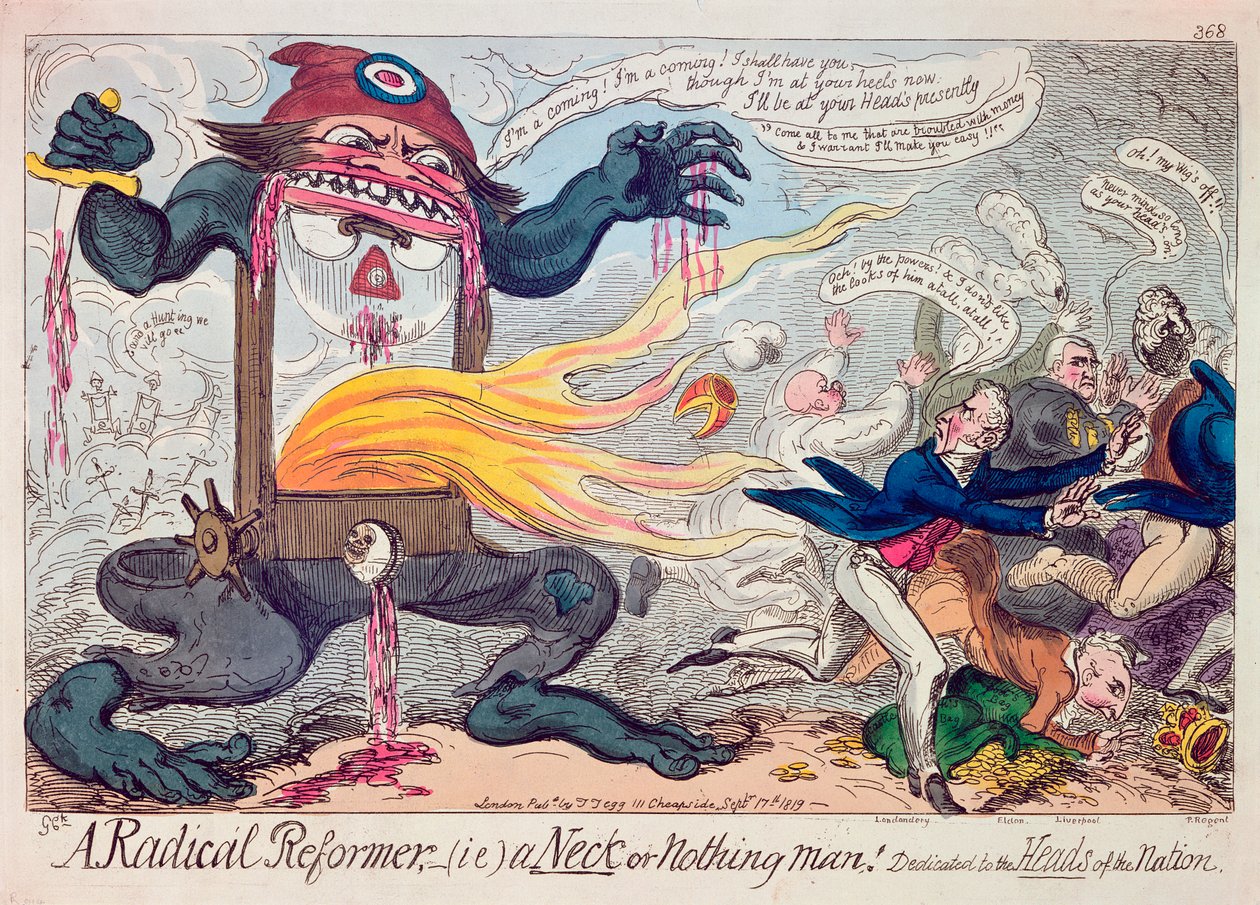 368
I'm a coming! I'm a coming! I shall have you,
though I'm at your heels now.
I'll be at your Head's presently
"Come all to me that are troubled with money
& I warrant I'll make you easy!!"
Oh! my Wig's off!!
never mind so long
as your head's on
Och! by the powers! & I don't like
the looks of him at all, at all!
a Hunting we
will go
Bag
Bag
London Pubd. by T Tegg 111 Cheapside, Septr 17th 1819 —
Londonderry
Eldon.
Liverpool
P. Regent
G Ck
A Radical Reformer,_(ie) a Neck or Nothing man! Dedicated to the Heads of the Nation.